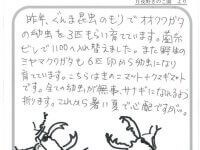 月夜野きのこ園 より
昨年、ぐんま昆虫の森でオオクワガタ
の幼虫を3匹もらい育てています。菌糸
ビンで1100へ入れ替えました。また野生の
ミヤマクワガタも6匹卵から幼虫になり
育てています。こちらはきのこマット+クヌギマット
です。全ての幼虫が無事、サナギになれるよう
祈ります。これから暑い夏で心配ですが。